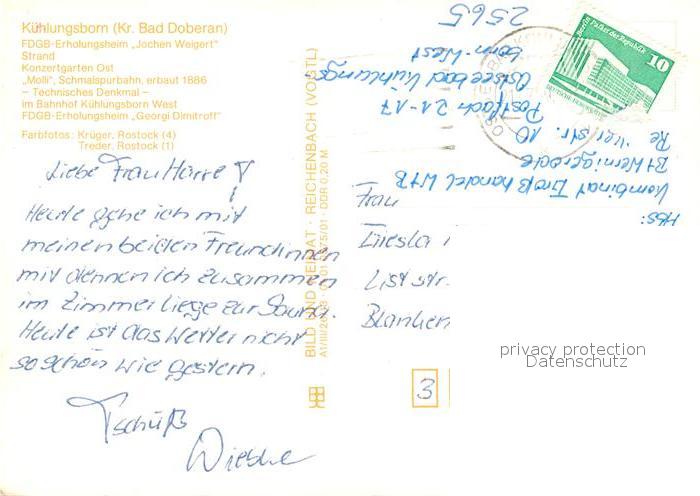 Kühlungsborn (Kr. Bad Doberan)
FDGB-Erholungsheim „Jochen Weigert"
Strand
Konzertgarten Ost
„Molli", Schmalspurbahn, erbaut 1886
– Technisches Denkmal –
im Bahnhof Kühlungsborn West
FDGB-Erholungsheim „Georgi Dimitroff"
Farbfotos: Krüger, Rostock (4)
Treder, Rostock (1)
Liebe Frau Harre!
Heute gehe ich mit
meinen beiden Freundinnen
mit dennen ich zusammen
im Zimmer liege zur Sauna.
Heute ist das Wetter nicht
so schön wie gestern.
Tschüß
Wieske
BILD UND HEIMAT · REICHENBACH (VOGTL)
A1/III/26/13
DDR 0,20 M
Abs:
Kombinat Großhandel WtB
Bt Wernigerode
10
Postfach 21-17
Ostseebad Kühlungs-
born-West
2565
Berlin Palast der Republik
10
DEUTSCHE DEMOKRATISCHE
Frau
List str.
Blanken
3
privacy protection
Datenschutz